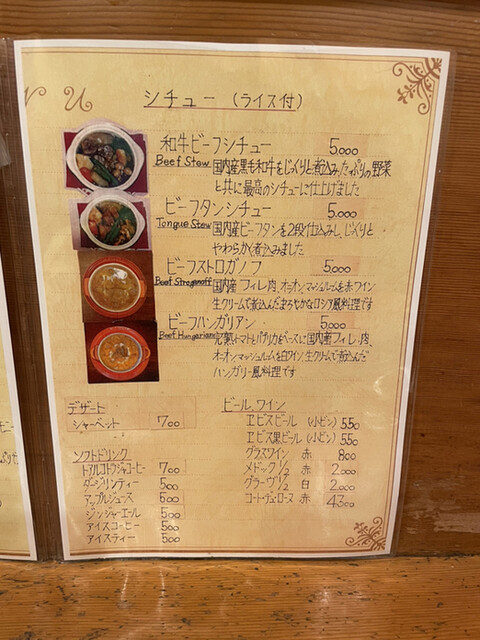 N U
シチュー (ライス付)
和牛ビーフシチュー 5,000
Beef Stew 国内産黒毛和牛をじっくりと煮込み、たっぷりの野菜
と共に最高のシチューに仕上げました
ビーフタンシチュー 5,000
Tongue Stew 国内産ビーフタンを2段仕込みし、じっくりと
やわらかく煮込みました
ビーフストロガノフ 5,000
Beef Stroganoff 国内産フィレ肉、オニオン、マッシュルームを赤ワイン
生クリームで煮込んだまろやかなロシア風料理です
ビーフハンガリアン 5,000
Beef Hungarian 完熟トマトとパプリカをベースに国内産フィレ肉、
オニオン、マッシュルームを白ワイン、生クリームで煮込んだ
ハンガリー風料理です
デザート
シャーベット 700
ソフトドリンク
トアルコトラジャコーヒー 700
ダージリンティー 500
アップルジュース 500
ジンジャーエール 500
アイスコーヒー 500
アイスティー 500
ビール、ワイン
エビスビール (小ビン) 550
エビス黒ビール (小ビン) 550
グラスワイン 赤 800
メドック 1/2 赤 2,000
グラーヴ 1/2 白 2,000
コート・デュ・ローヌ 赤 4300